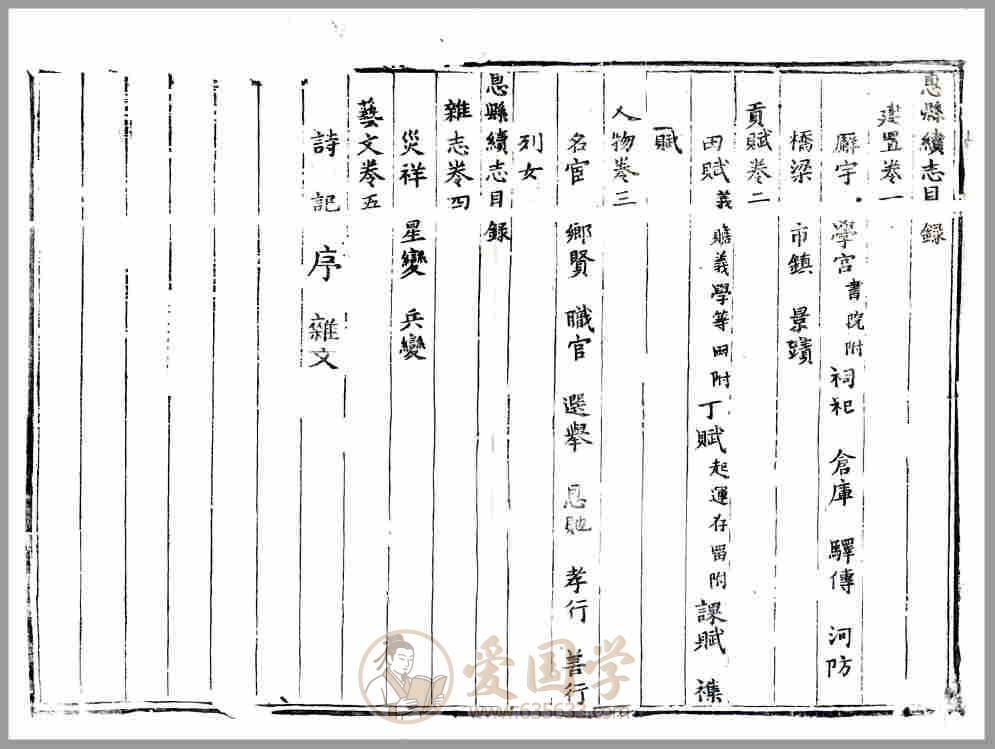 恩縣續志目錄
建置卷一
廨宇 學宮書院附 祠祀 倉庫 驛傳 河防
橋梁 市鎮 景蹟
貢賦卷二
田賦義贍義學等田附 丁賦起運存留附 課賦 襍
賦
人物卷三
名宦 鄉賢 職官 選舉 恩貤 孝行 善行
列女
恩縣續志目錄
雜志卷四
災祥 星變 兵變
藝文卷五
詩 記 序 雜文
爱国学
www.635633.com